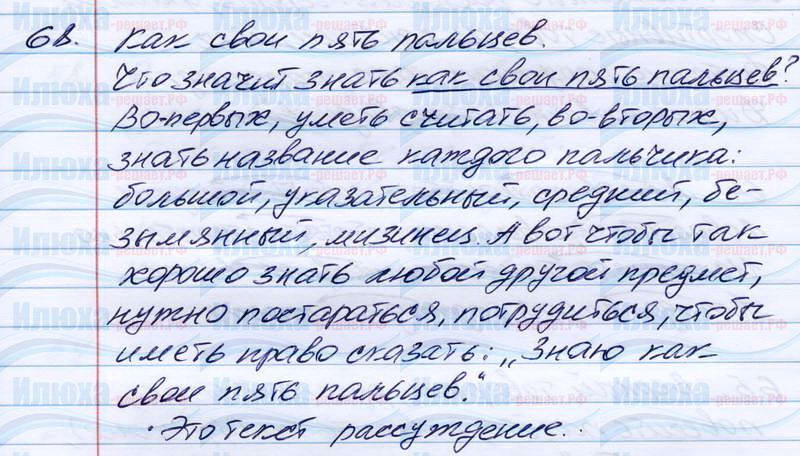 68. Как свои пять пальцев.
Что значит знать как свои пять пальцев?
Во-первых, уметь считать, во-вторых,
знать название каждого пальчика:
большой, указательный, средний, бе-
зымянный, мизинец. А вот чтобы так
хорошо знать любой другой предмет,
нужно постараться, потрудиться, чтобы
иметь право сказать: „Знаю как
свои пять пальцев."
Это текст рассуждение.
Илюха
-решает.РФ